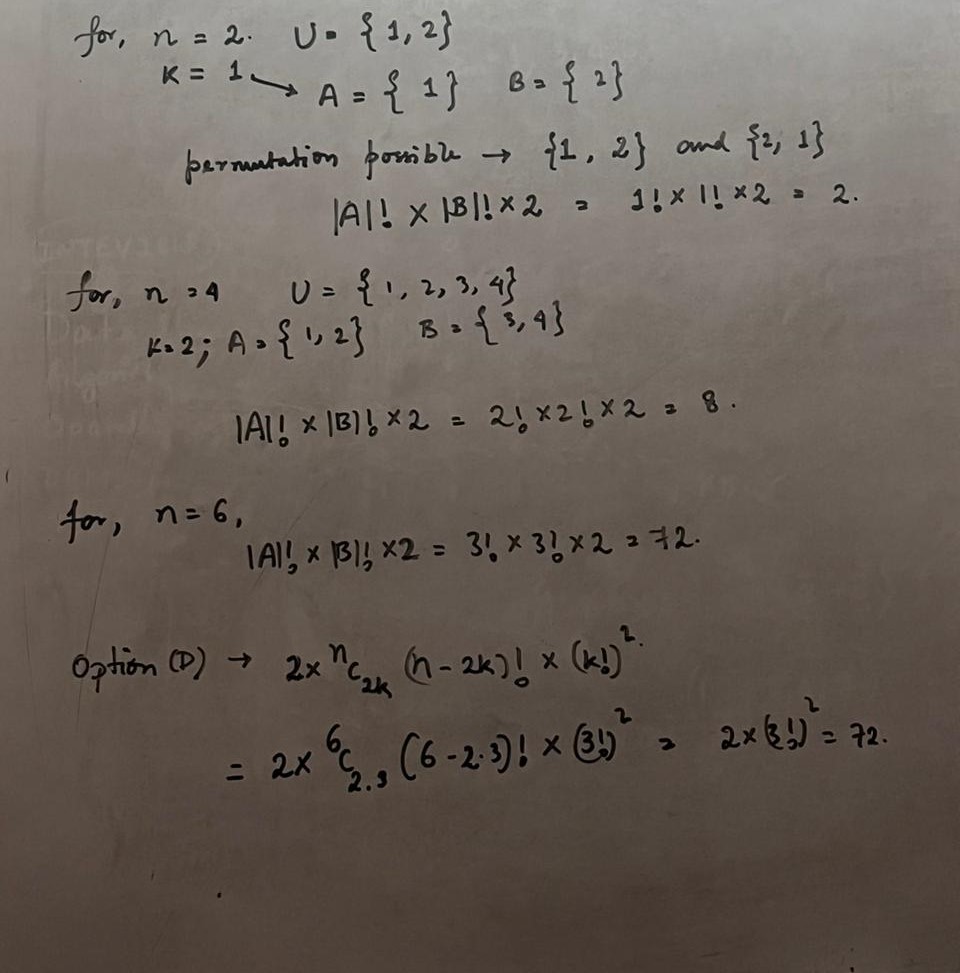 for, n = 2. U = {1, 2}
K = 1 → A = {1} B = {2}
permutation possible → {1, 2} and {2, 1}
|A|! × |B|! × 2 = 1! × 1! × 2 = 2.
for, n = 4 U = {1, 2, 3, 4}
K = 2; A = {1, 2} B = {3, 4}
|A|! × |B|! × 2 = 2! × 2! × 2 = 8.
for, n = 6,
|A|! × |B|! × 2 = 3! × 3! × 2 = 72.
Option (D) → 2 × ⁿC₂ₖ (n - 2k)! × (k!)².
= 2 × ⁶C₂.₃ (6 - 2.3)! × (3!)² = 2 × (3!)² = 72.